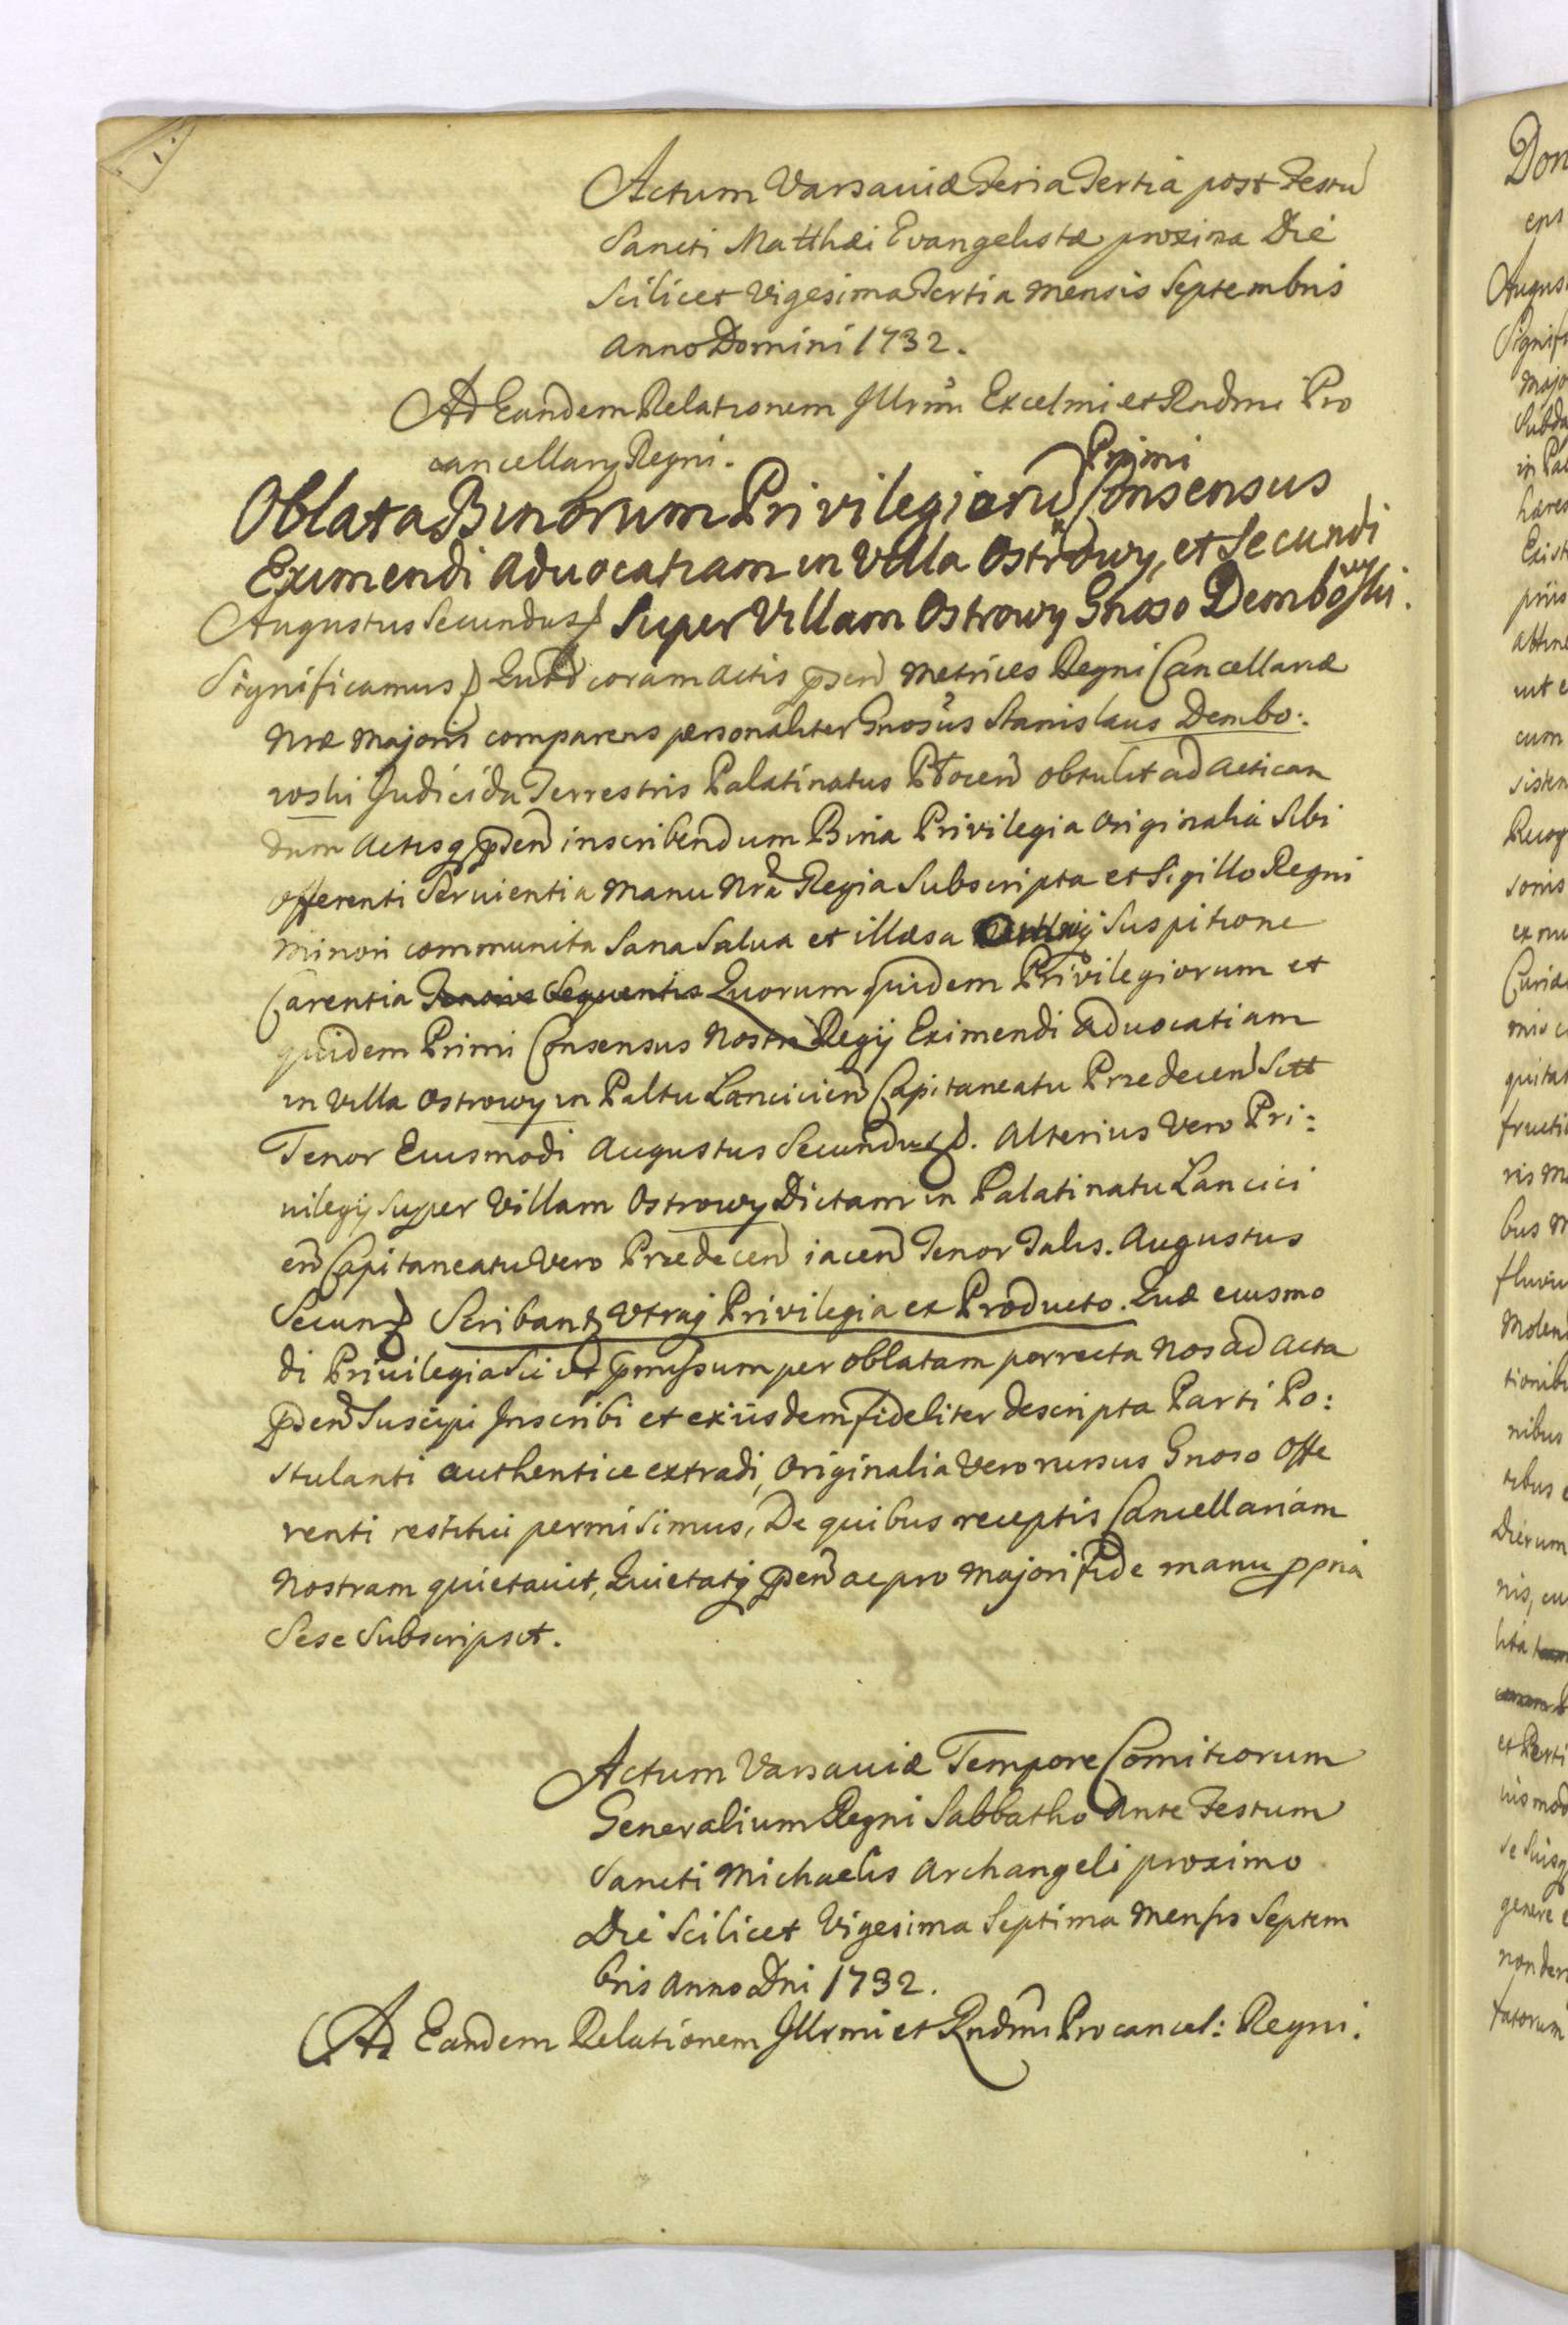 Actum Varsaviæ Feria Tertia post Festū
Sancti Matthæi Evangelistæ proxima Die
Scilicet Vigesima Tertia Mensis Septembris
Anno Domini 1732.
Ad Eandem Relationem Illrmi Excelmi et Rndmi Pro
cancellarij Regni.
Primi
Oblata Binorum Privilegiorū Consensus
Eximendi Advocatiam in Villa Ostrowy, et Secundi
Augustus Secundus Super Villam Ostrowy Gnoso Dembowski.
Significamus Quod coram Actis psen Metrices Regni Cancellariæ
Nræ Majoris comparens personaliter Gnosus Stanislaus Dembo:
wski Judicida Terrestris Palatinatus Plocen obtulit ad Actican
dum Actisq psen inscribendum Bina Privilegia Originalia Sibi
Offerenti Servientia Manu Nra Regia Subscripta et Sigillo Regni
Minori communita Sana Salva et illæsa Suspitione
Carentia Tenoris Sequentis Quorum quidem Privilegiorum et
quidem Primi Consensus Nostri Regij Eximendi Advocatiam
in Villa Ostrowy in Paltu Lancicien Capitaneatu Przedecen Sitt
Tenor Eiusmodi Augustus Secundus. Alterius Vero Pri:
vilegij Super Villam Ostrowy Dictam in Palatinatu Lancici
en Capitaneatu Vero Przedecen iacen Tenor Talis. Augustus
Secun Scribant Utraq Privilegia ex Producto. Quæ eiusmo
di Privilegia Sic ut pmissum per oblatam porrecta Nos ad Acta
psen Suscipi Inscribi et exiisdem fideliter descripta Parti Po:
stulanti authentice extradi, Originalia Vero rursus Gnoso Offe
renti restitui permisimus, De quibus receptis Cancellariam
Nostram quietavit, Quietatq psen ac pro Majori fide manu ppria
Sese Subscripsit.
Actum Varsaviæ Tempore Comitiorum
Generalium Regni Sabbatho Ante Festum
Sancti Michaelis Archangeli proximo
Die Scilicet Vigesima Septima Mensis Septem
bris Anno Dni 1732.
Ad Eandem Relationem Illrmi et Rndmi Procancel: Regni.